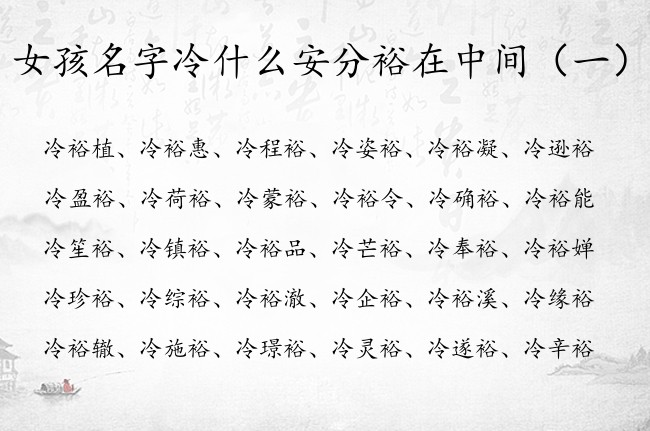 女孩名字冷什么安分裕在中间（一）
冷裕植、冷裕惠、冷程裕、冷姿裕、冷裕凝、冷逊裕
冷盈裕、冷荷裕、冷蒙裕、冷裕令、冷确裕、冷裕能
冷笙裕、冷镇裕、冷裕品、冷芒裕、冷奉裕、冷裕婵
冷珍裕、冷综裕、冷裕澈、冷企裕、冷裕溪、冷缘裕
冷裕辙、冷施裕、冷璟裕、冷灵裕、冷遂裕、冷辛裕